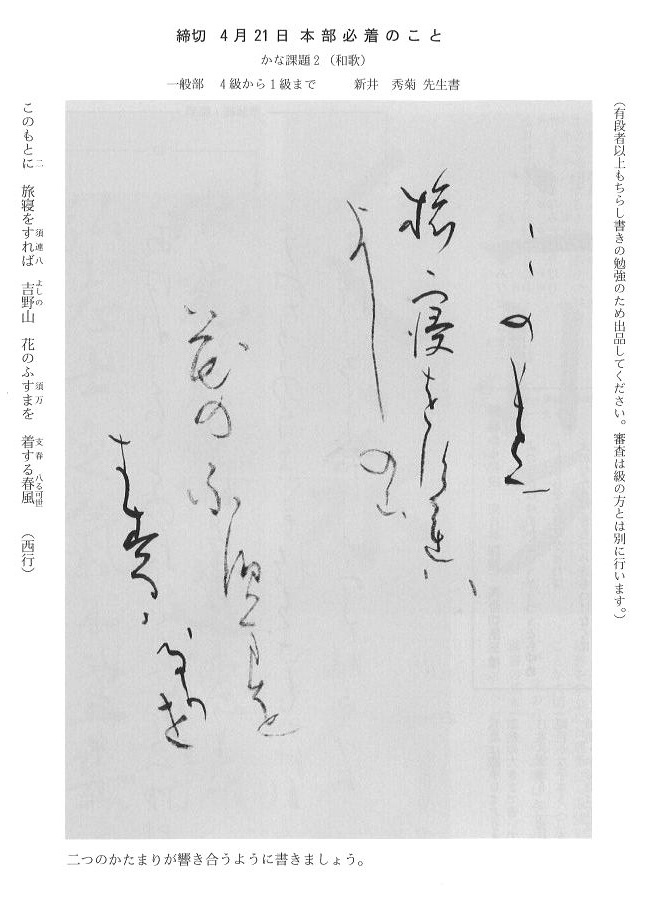 締切 4月21日 本部必着のこと
かな課題2（和歌）
一般部 4級から1級まで 新井 秀菊 先生書
（有段者以上もちらし書きの勉強のため出品してください。審査は級の方とは別に行います。）
このもとに
旅寝をすれば
よしの山
花のふすまを
きする春
風
このもとに 旅寝をすれば 吉野山 花のふすまを 着する春風 （西行）
二 須連八 よしの 須万 支春 八る可世
二つのかたまりが響き合うように書きましょう。